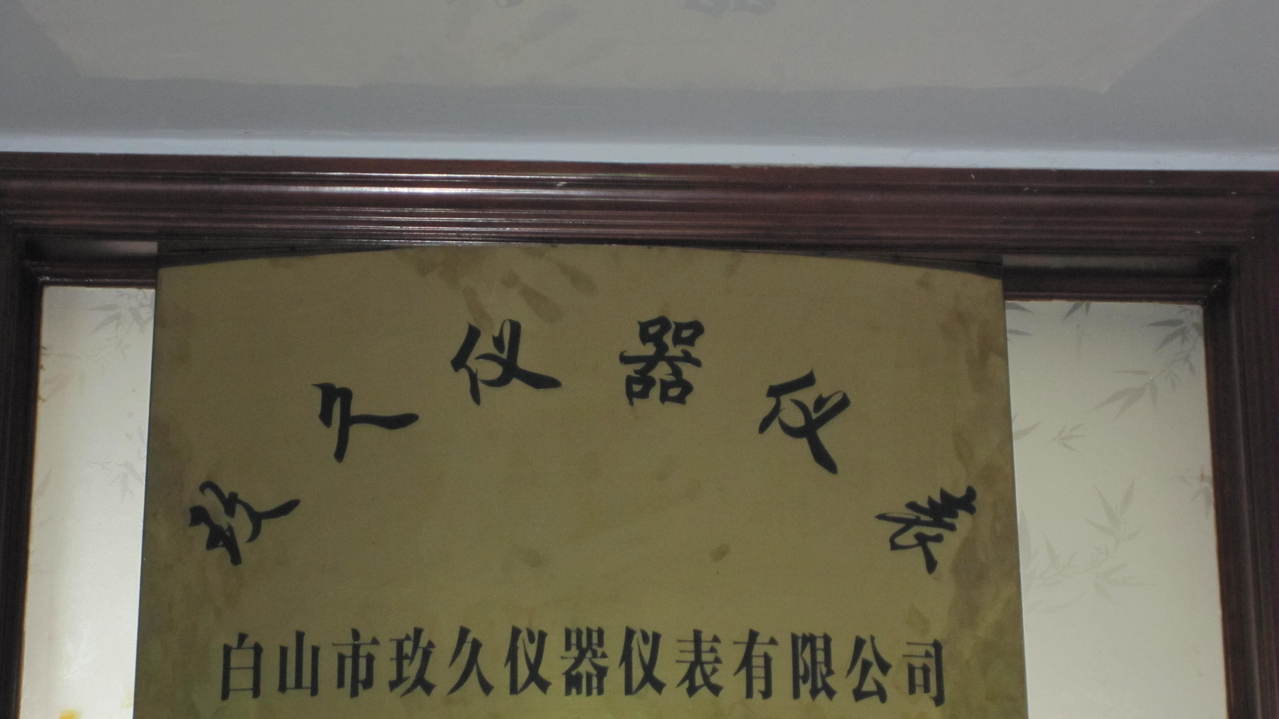 玖久仪器仪表
白山市玖久仪器仪表有限公司